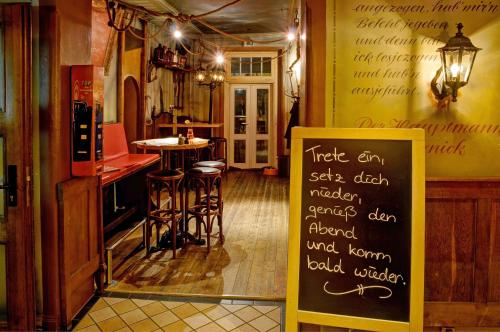 angezogen, hab' mir'n
Befehl jegeben
und denn bin
ick losjezogen
und hab'n
ausjeführt.
Der Hauptmann
enick
Trete ein,
setz dich
nieder,
genieß den
Abend
und komm
bald wieder.